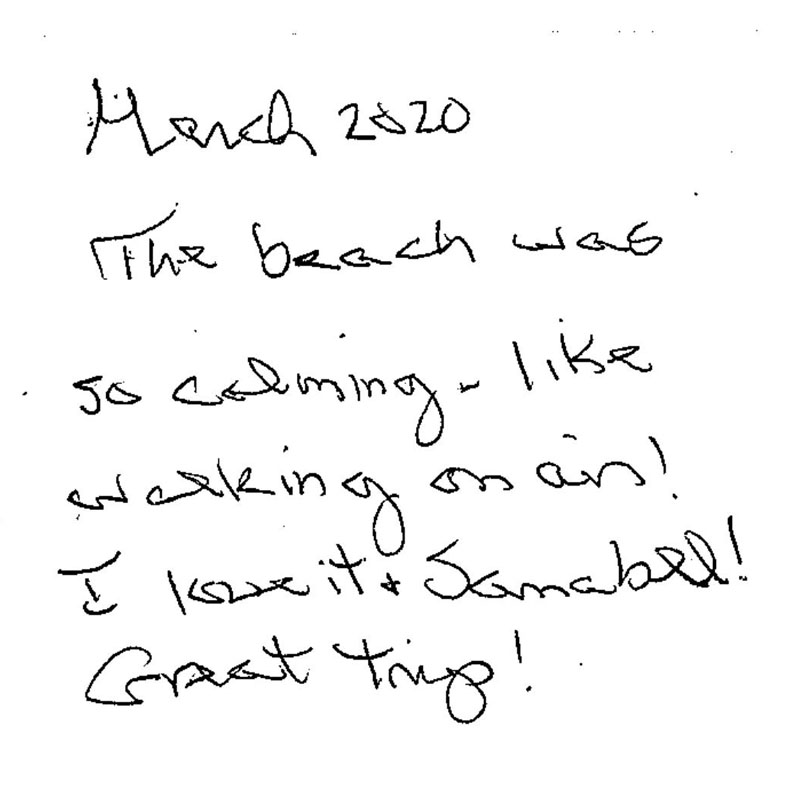 March 2020
The beach was
so calming - like
walking on air!
I love it + Sanabel!
Great trip!